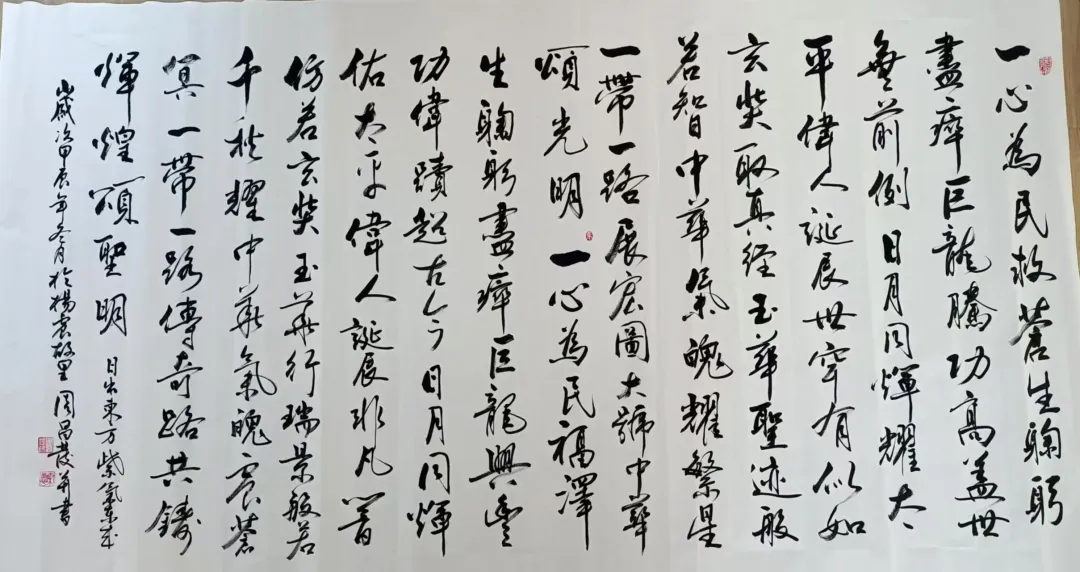 一心為民救蒼生鞠躬
盡瘁巨龍騰功高蓋世
無前例日月同輝耀太
平偉人誕辰世罕有似如
玄奘取真经玉華聖迹般
若智中華氣魄耀繁星
一帶一路展宏圖大號中華
頌光明一心為民福澤
生鞠躬盡瘁巨龍興豐
功偉蹟超古今日月同輝
佑太平偉人誕辰非凡響
仿若玄奘玉華行瑞景般若
千秋耀中華氣魄震蒼
冥一帶一路傳奇路共鑄
輝煌頌聖明日出東方紫氣東
歲次甲辰年冬月於楊震故里周昌發並書